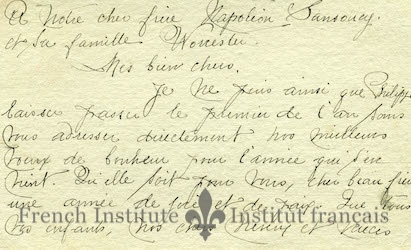 A Notre cher frère Napoléon Sansoucy
et sa famille Worcester.
Mes bien chers.
Je ne puis ainsi que Philippe
laisser passer le premier de l'an sans
vous adresser directement nos meilleurs
voeux de bonheur pour l'année qui
vient. Qu'elle soit pour vous, cher beau frère
une année de joie et de paix. Que vous
vos enfants, nos chers neveux et nièces
French Institute Institut français